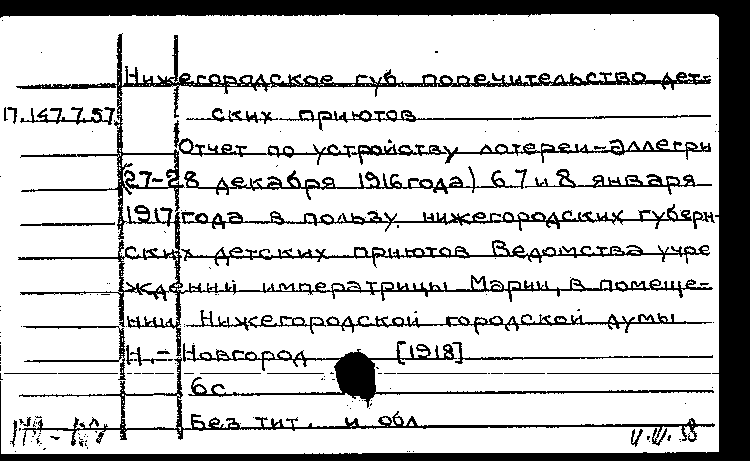 Нижегородское губ. попечительство дет-
17.147.7.57 ских приютов
Отчет по устройству лотереи-аллегри
(27-28 декабря 1916 года) 6 7 и 8 января
1917 года в пользу нижегородских губерн-
ских детских приютов Ведомства учре
ждений императрицы Марии, в помеще-
нии Нижегородской городской думы
Н.-Новгород [1918]
6 с.
Без тит. и обл.